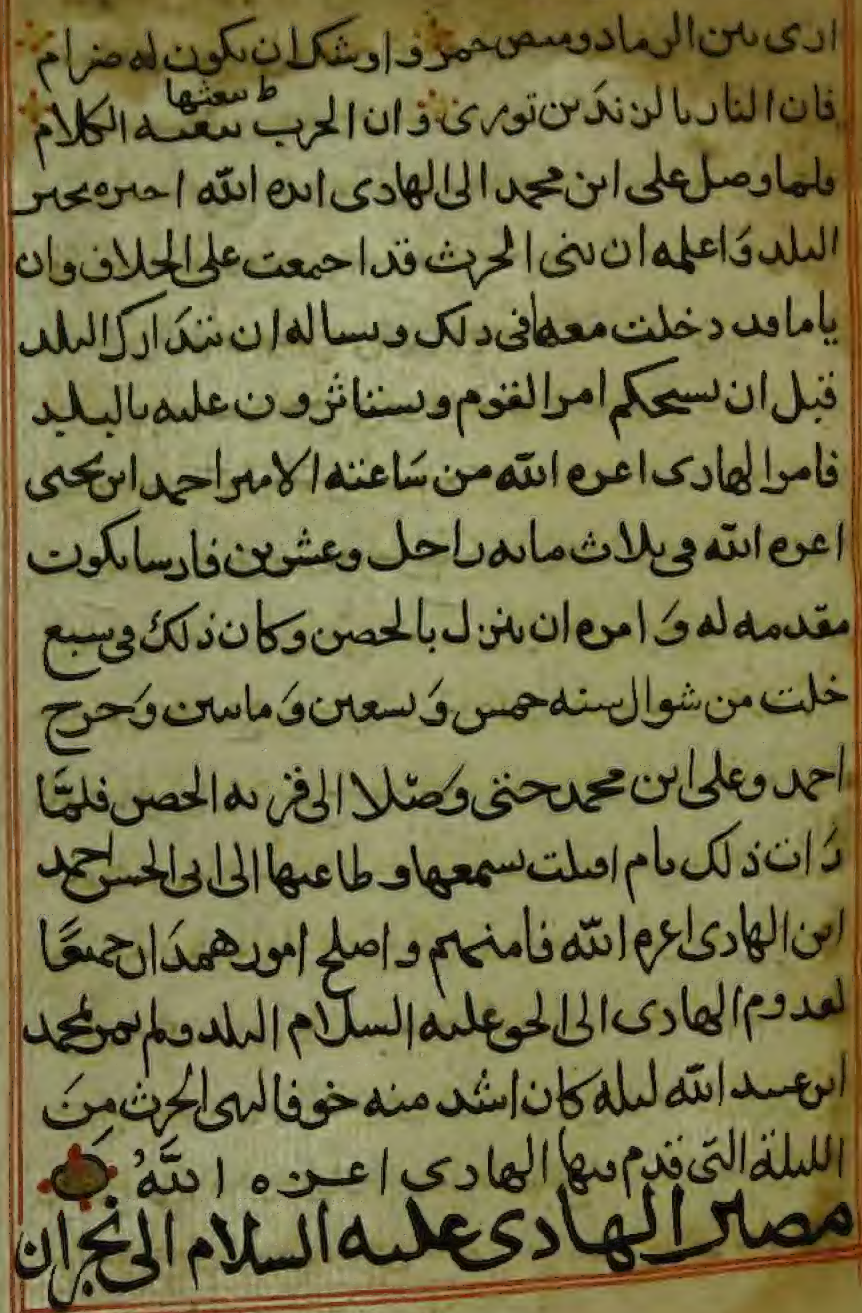 ارى بين الرماد وميض جمر واوشك ان يكون له ضرام
فان النار بالزندين تورى وان الحرب يبعثه الكلام
ط يبعثها
فلما وصل على ابن محمد الى الهادى ايده الله اخبره بخبر
البلد واعلمه ان بنى الحرث قد اجمعت على الخلاف وان
ياما قد دخلت معها فى ذلك ويساله ان يتدارك البلد
قبل ان يستحكم امر القوم ويستاثرون عليه بالبلد
فامر الهادى اعزه الله من ساعته الامير احمد ابن يحيى
اعزه الله فى ثلاث مايه راجل وعشرين فارسا يكون
مقدمه له وامره ان ينزل بالحصن وكان ذلك فى سبع
خلت من شوال سنه خمس وتسعين ومايتين وخرج
احمد وعلى ابن محمد حتى وصلا الى قريه الحصن فلما
رات ذلك يام اقبلت بسمعها وطاعتها الى ابى الحسن احمد
ابن الهادى اعزه الله فامنهم واصلح امور همدان جميعًا
لقدوم الهادى الى الحق عليه السلام البلد ولم يمر لمحمد
ابن عبيد الله ليله كان اشد منه خوفا لبنى الحرث من
الليلة التى قدم فيها الهادى اعزه اللهُ
مصير الهادى عليه السلام الى نجران